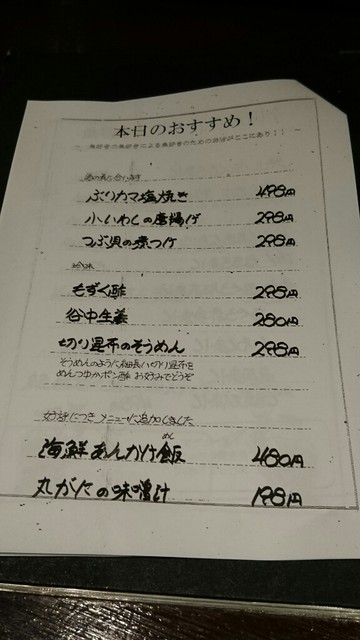 本日のおすすめ！
魚好きの魚好きによる魚好きのためのおかずがここにあり！！
ぶりカマ塩焼き 498円
小いわしの唐揚げ 298円
つぶ貝の煮つけ 298円
珍味
もずく酢 298円
谷中生姜 280円
切り昆布のそうめん 298円
そうめんのように細長い切り昆布を
めんつゆかポン酢 お好みでどうぞ
好評につき メニューに追加しました
めし
海鮮あんかけ飯 480円
丸がにの味噌汁 198円